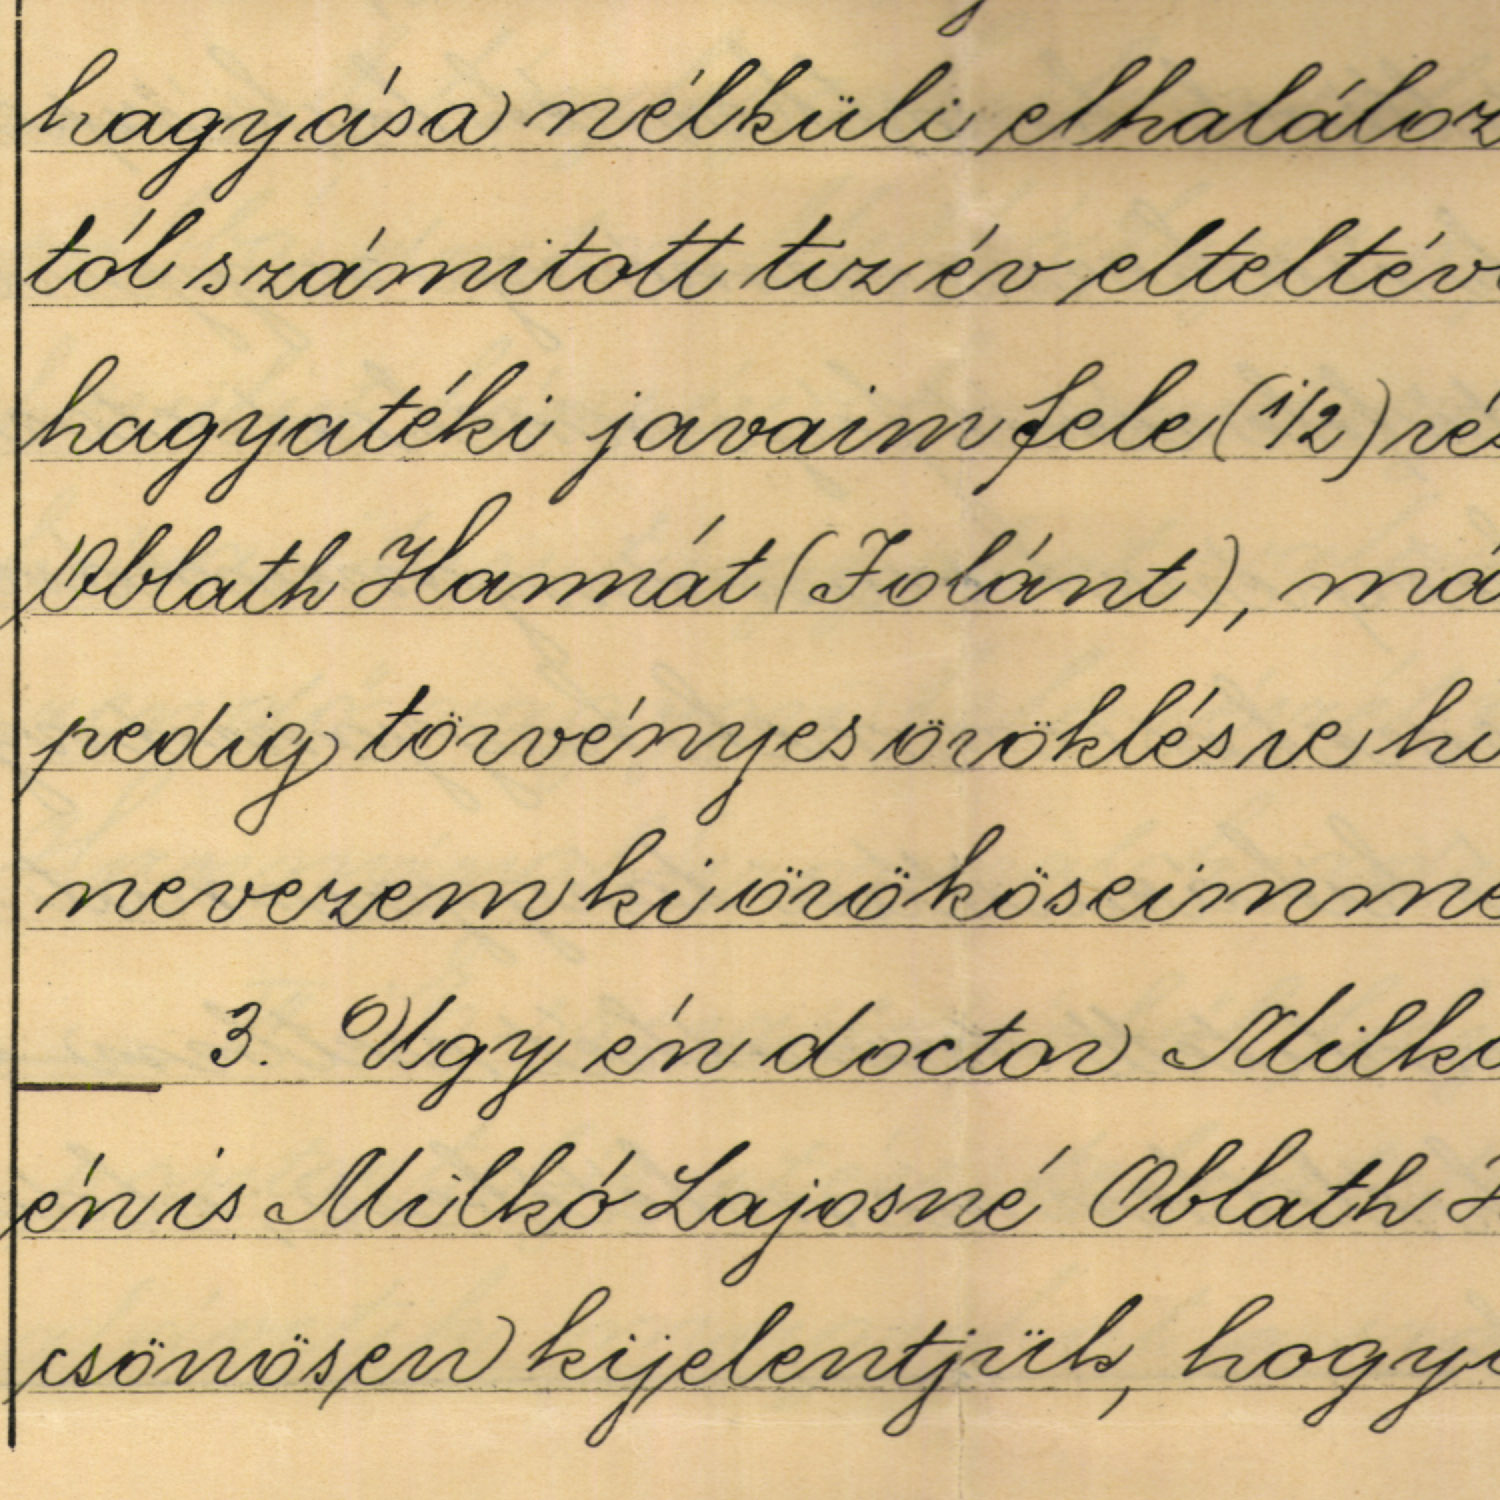 hagyása nélküli elhaláloz
tól számitott tiz év elteltév
hagyatéki javaim fele (1/2) rés
Oblath Hannát (Jolánt), má
pedig törvényes öröklésre hi
nevezem ki örököseimme
3. Ugy én doctor Milkó
én is Milkó Lajosné Oblath
csönösen kijelentjük, hogy